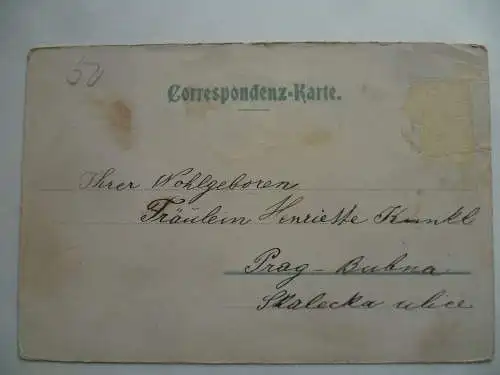 50
Correspondenz-Karte.
Ihrer Wohlgeboren
Fräulein Henriette Kunkl
Prag-Bubna
Skalecka ulice